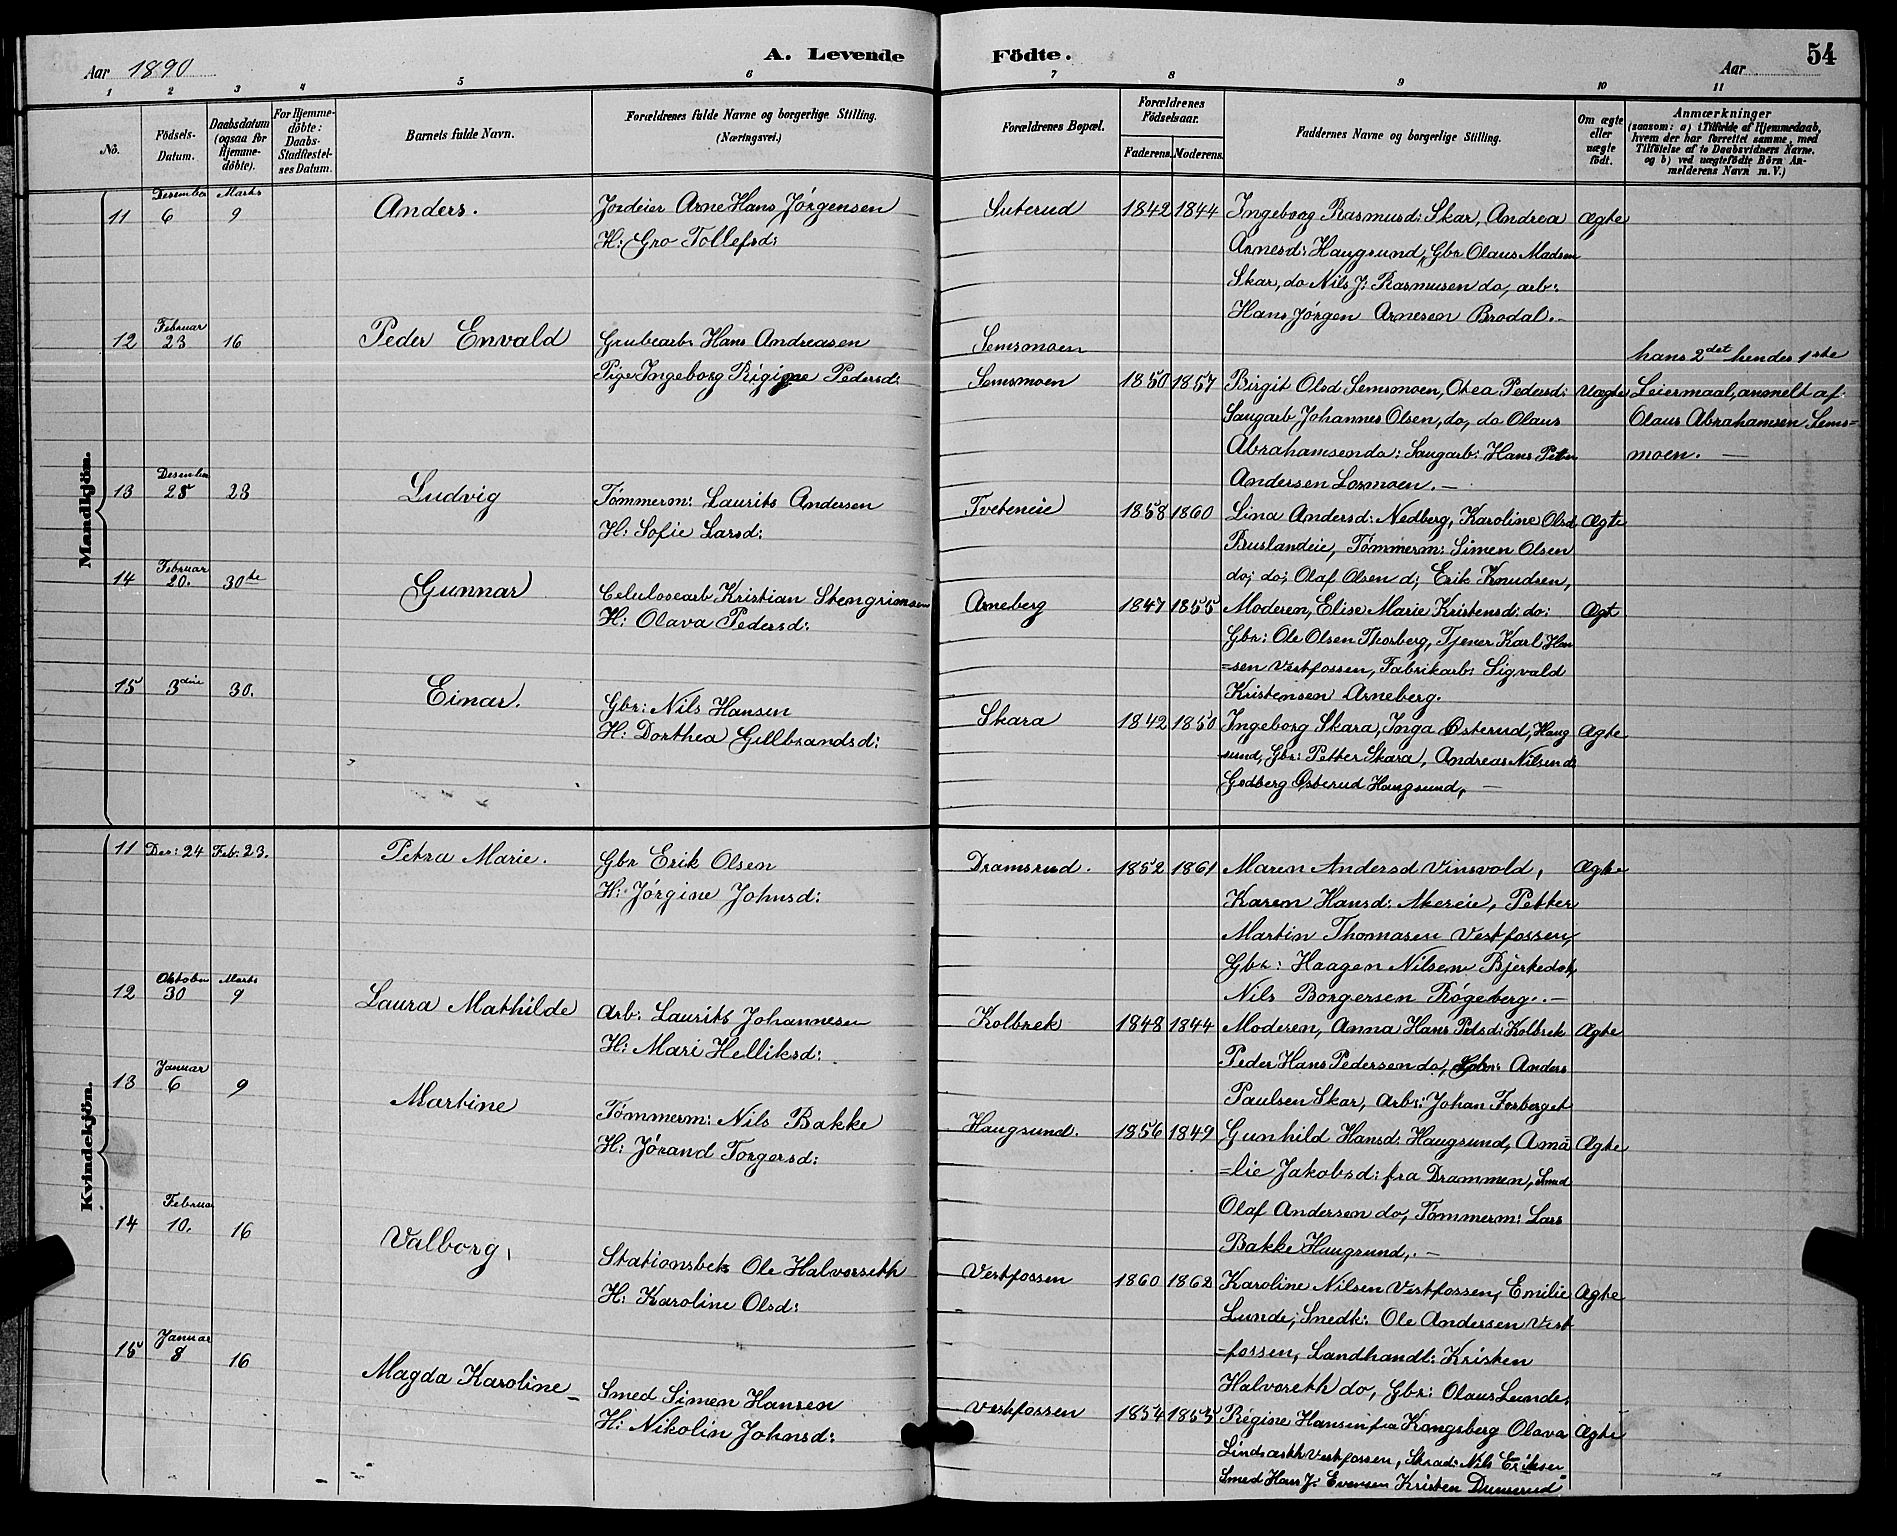 Aar 1890
A. Levende
Födte.
Aar
54
1 2 3 4 5 6 7 8 9 10 11
No.
Födsels-Datum.
Daabsdatum (ogsaa for Hjemme-döbte).
For Hjemme-döbte: Daabs-Stadfæstel-ses Datum.
Barnets fulde Navn.
Forældrenes fulde Navne og borgerlige Stilling. (Næringsvei.)
Forældrenes Bopæl.
Forældrenes Födselsaar.
Faderens. Moderens.
Faddernes Navne og borgerlige Stilling.
Om ægte eller uægte födt.
Anmærkninger
(saasom: a) i Tilfælde af Hjemmedaab,
hvem der har forrettet samme, med
Tilföielse af to Daabsvidners Navne.
og b) ved uægtefödte Börn An-
melderens Navn m. V.)
Mandkjön.
11 Desember 6 Marts 9 Anders. Jordeier Arne Hans Jørgensen Suterud 1842 1844 Ingeborg Rasmusd: Skar, Andrea Ægte
H: Gro Tollefsd: Arnesd: Haugsund, Gbr Olaus Madsen
Skar, do Nils J: Rasmusen do, arb:
Hans Jørgen Arnesen Brodal.-
12 Februar 23 16 Peder Envald Grubearb: Hans Andreasen Semsmoen hans 2det hendes 1ste
Pige Ingeborg Rigine Pedersd: Semsmoen 1850 1857 Birgit Olsd Semsmoen, Otea Pedersd: Uægte Leiermaal, anmelt af
Saugarb Johannes Olsen, do, do Olaus Olaus Abrahamsen Sems=
Abrahamsen do: Saugarb: Hans Peter moen. -
Andersen Losmoen.-
13 Desember 25 23 Ludvig Tømmerm: Laurits Andersen Tveteneie 1858 1860 Lina Andersd: Nedberg, Karoline Olsd Ægte
H: Sofie Larsd: Ruslandeie, Tømmerm: Simen Olsen
do; do; Olaf Olsen d; Erik Knudsen,
14 Februar 20. 30te Gunnar Celulosearb Kristian Stengrimsen Arneberg 1847 1855 Moderen, Elise Marie Kristensd: do: Ægt
H: Olava Pedersd: Gbr: Ole Olsen Thorberg, Tjener Karl Han
=sen Vestfossen, Fabrikarb: Sigvald
Kristensen Arneberg.
15 3die 30. Einar. Gbr: Nils Hansen Skara 1842 1850 Ingeborg Skara, Inga Østerud, Haug Ægte
H: Dorthea Gullbrandsd: sund, Gbr: Petter Skara, Andreas Nilsen d:
Godberg Østerud Haugsund, -
Kvindekjön.
11 Des: 24 Feb. 23. Petra Marie. Gbr Erik Olsen Dramsrud. 1852 1861 Maren Andersd Vinsvold, Ægte
H: Jørgine Johnsd: Karen Hansd: Akereie, Petter
Martin Thomasen Vestfossen,
Gbr: Haagen Nilsen Bjerkedok,
Nils Borgersen Røgeberg.-
12 Oktober 30 Marts 9 Laura Mathilde Arb: Laurits Johannesen Kolbrek 1848 1844 Moderen, Anna Hans Pedsd: Kolbrek Ægte
H: Mari Helliksd: Peder Hans Pedersen do, Gbr: Anders
Paulsen Skar, Arb: Johan Forberget
13 Januar 6 9 Martine Tømmerm: Nils Bakke Haugsund. 1856 1849 Gunhild Hansd: Haugsund, Ama Ægte
H: Jørand Torgersd: =lie Jakobsd: fra Drammen, Smed
Olaf Andersen do, Tømmerm: Lars
Bakke Haugsund,.-
14 Februar 10. 16 Valborg, Stationsbet: Ole Halvorseth Vestfossen 1860 1862 Karoline Nilsen Vestfossen, Emilie Ægte
H: Karoline Olsd: Lunde, Snedk: Ole Andersen Vest
=fossen, Landhandl: Kristen
Halvorseth do, Gbr: Olaus Lunde,
15 Januar 8 16 Magda Karoline- Smed Simen Hansen Vestfossen 1854 1855 Regine Hansen fra Kongsberg Olava Ægte
H: Nikolin Johnsd: Vestfossen, Skræd: Nils Eriksen
Smed Hans J: Evensen Kristen Dunserud